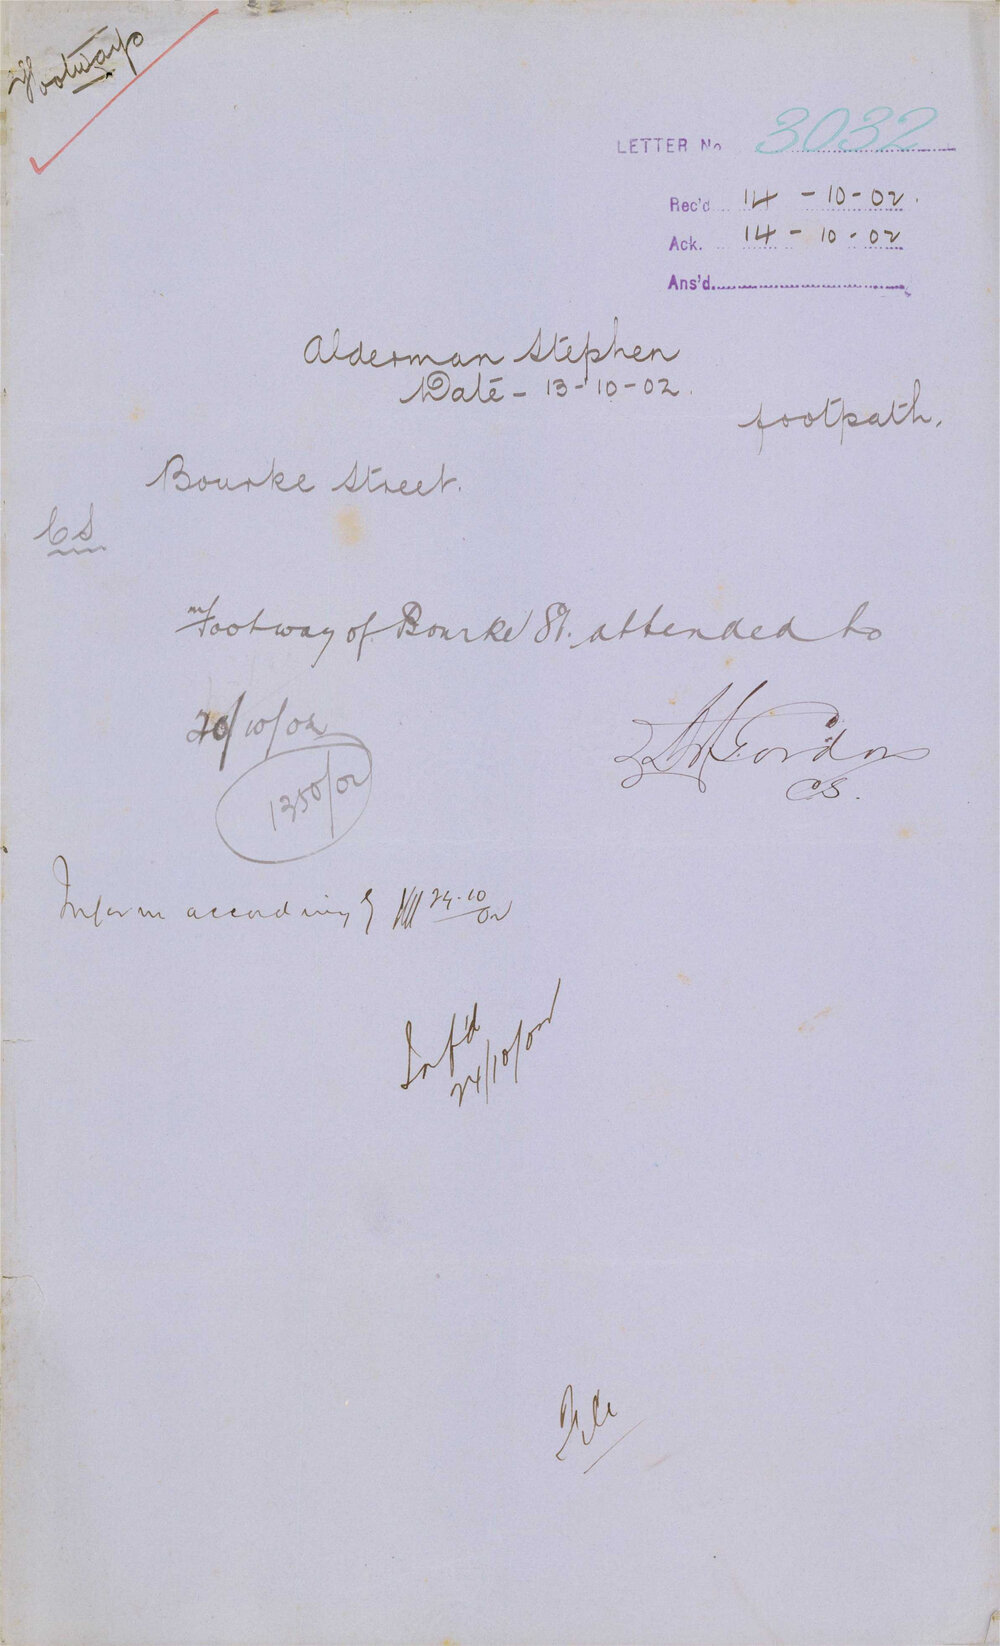 Footways
LETTER No 3032
Rec'd 14-10-02.
Ack. 14-10-02
Ans'd
Alderman Stephen
Date - 13-10-02.
footpath.
Bourke Street.
CS
Footway of Bourke St. attended to
20/10/02
Gordon
CS.
1350/02
Inform accordingly 24.10
02
Inf'd
24/10/02
File